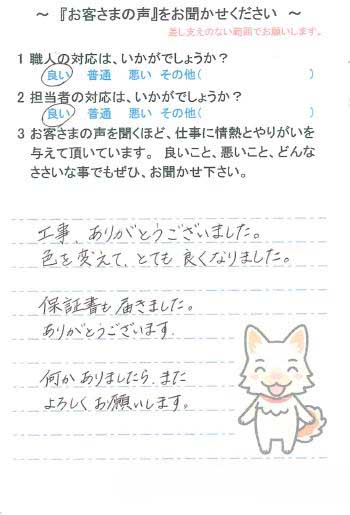 ～ 『お客さまの声』をお聞かせください ～
差し支えのない範囲でお願いします。
1 職人の対応は、いかがでしょうか？
良い 普通 悪い その他( )
2 担当者の対応は、いかがでしょうか？
良い 普通 悪い その他( )
3 お客さまの声を聞くほど、仕事に情熱とやりがいを
与えて頂いています。 良いこと、悪いこと、どんな
ささいな事でもぜひ、お聞かせ下さい。
工事、ありがとうございました。
色を変えて、とても良くなりました。
保証書も届きました。
ありがとうございます.
何かありましたら、また
よろしくお願いします。